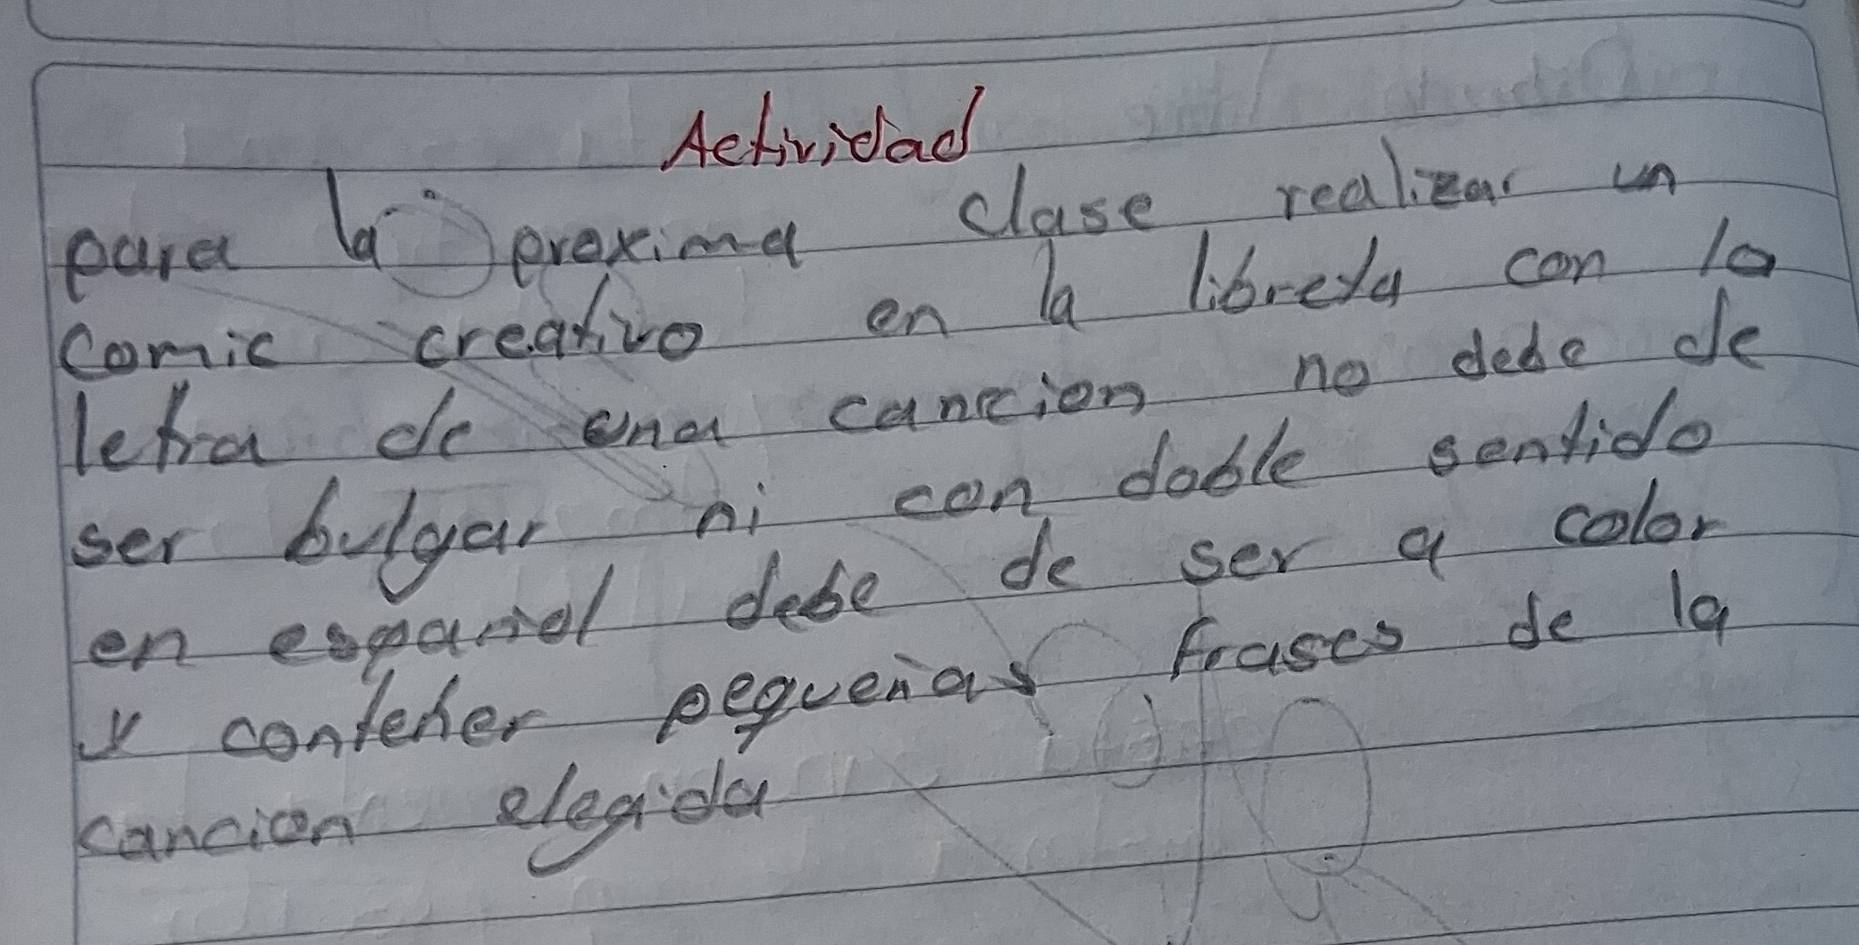 Actividad
para la proxima clase realizar un
comic creativo en la libreta con la
letra de una cancion no debe de
ser bulgar ni con doble sentido
en español debe de ser a color
y contener pequeñas frases de la
cancion elegida